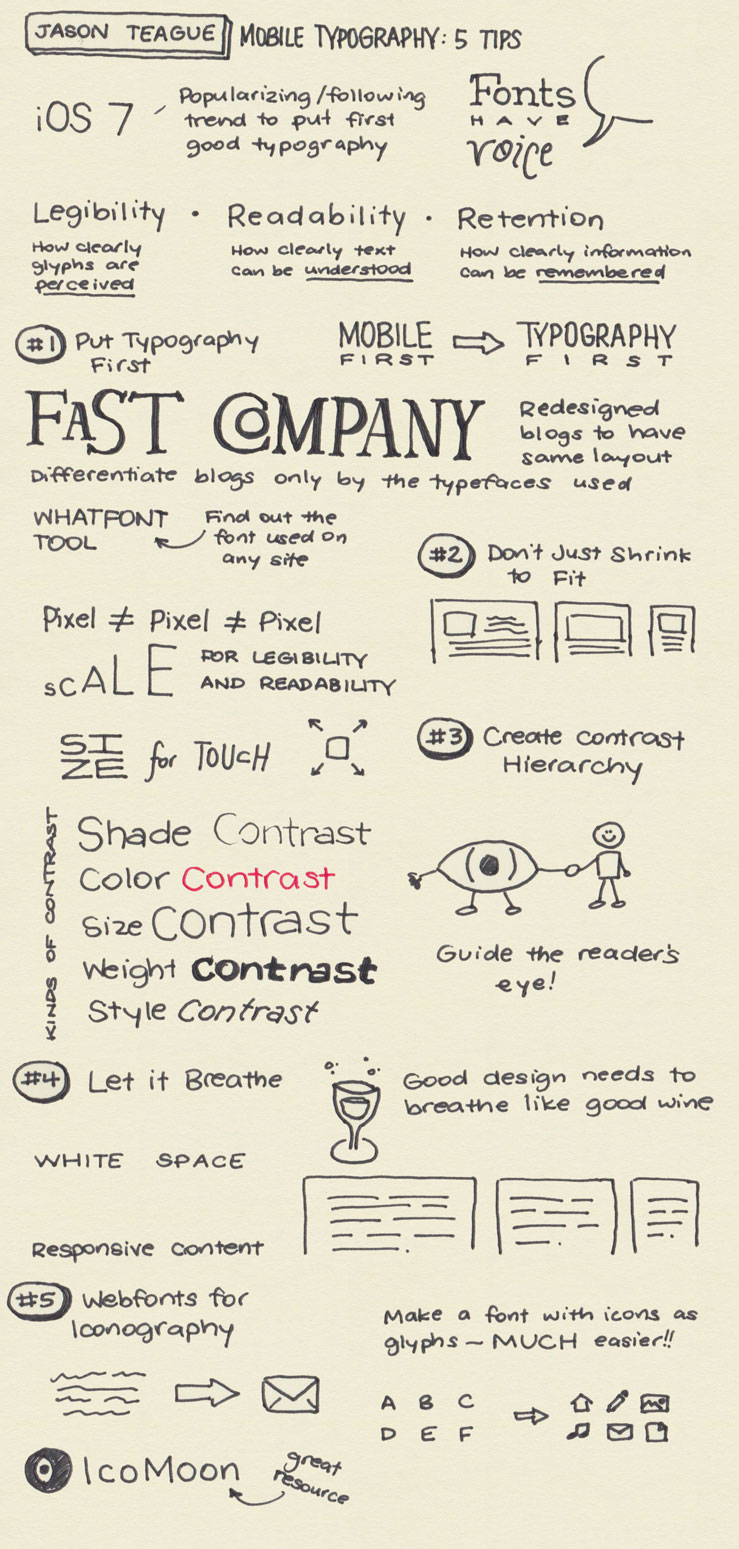 JASON TEAGUE MOBILE TYPOGRAPHY: 5 TIPS
iOS 7
Popularizing/following
trend to put first
good typography
Fonts
HAVE
voice
Legibility · Readability · Retention
How clearly
glyphs are
perceived
How clearly text
can be understood
How clearly information
can be remembered
#1 Put Typography
First
MOBILE
FIRST
TYPOGRAPHY
FIRST
FAST COMPANY
Redesigned
blogs to have
same layout
Differentiate blogs only by the typefaces used
WHATFONT
TOOL
Find out the
font used on
any site
#2 Don't Just Shrink
to Fit
Pixel ≠ Pixel ≠ Pixel
SCALE FOR LEGIBILITY
AND READABILITY
SIZE for TOUCH
#3 Create Contrast
Hierarchy
KINDS OF CONTRAST
Shade Contrast
Color Contrast
Size Contrast
Weight Contrast
Style Contrast
Guide the reader's
eye!
#4 Let it Breathe
Good design needs to
breathe like good wine
WHITE SPACE
Responsive Content
#5 Webfonts for
Iconography
Make a font with icons as
glyphs - MUCH easier!!
A B C
D E F
IcoMoon
great
resource